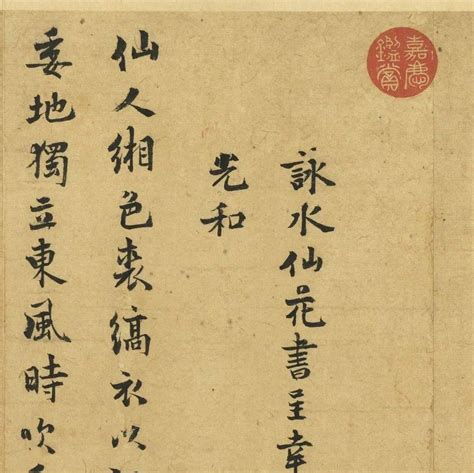 嘉慶鑑賞
詠水仙花書呈幸
光和
仙人緗色裘縞衣以
委地獨立東風時吹